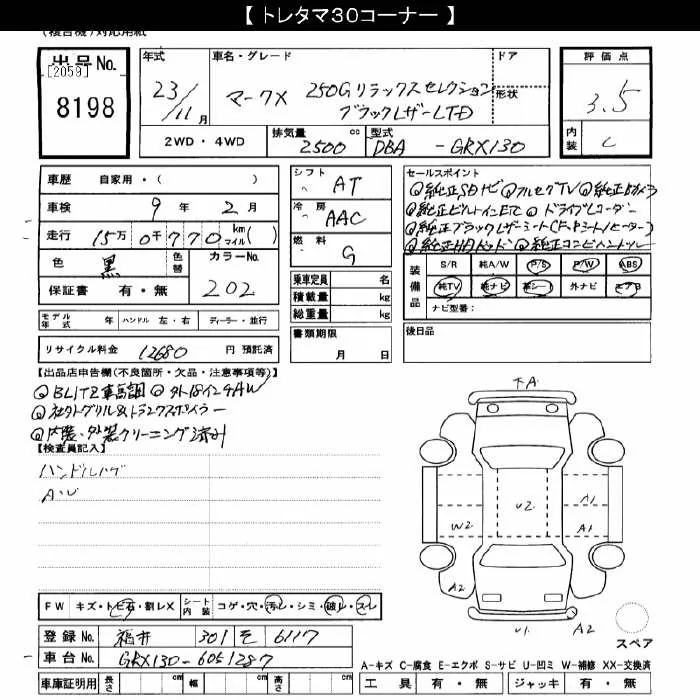 【 トレタマ30コーナー 】
出品No. [2059] 8198
年式 23/11月
車名・グレード マークX 250Gリラックスセレクション
ブラックレザーLTD
ドア 形状
2WD・4WD 排気量 2500 cc 型式 DBA - GRX130
評価点 3.5
内装 C
車歴 自家用・( )
車検 9年 2月
走行 15万0千770 km マイル ( )
色 黒 色替 カラーNo. 202
保証書 有・無
シフト AT
冷房 AAC
燃料 G
乗車定員 名
積載量 kg
総重量 kg
書類期限 月 日
モデル年式 年 ハンドル 左・右 ディーラー・並行
リサイクル料金 12680 円 預託済
セールスポイント
◎純正SDナビ ◎フルセグTV ◎純正Bカメラ
◎純正ビルトインETC ◎ドライブレコーダー
◎純正ブラックレザーシート(F・Pシート/ヒーター)
◎純正HIDヘッド ◎純正コンビハンドル
装備品 S/R 純A/W P/S P/W ABS
純TV 純ナビ 革シート 外ナビ エアB
ナビ型番:
後日品
【出品店申告欄(不良箇所・欠品・注意事項等)】
◎BLITZ車高調 ◎外18インチAW
◎社外グリル&トランクスポイラー
◎内装・外装クリーニング済み
【検査員記入】
ハンドルハゲ
A・U
FW キズ・トビ石・割レX シート内装 コゲ・穴・汚レ・シミ・破レ・スレ
登録No. 福井 301 そ 6117
車台No. GRX130-6051287
車庫証明用 長さ cm 幅 cm 高さ cm
F A
U2
A1
W2
A1
A2
A2
U1 A2
スペア
A-キズ C-腐食 E-エクボ S-サビ U-凹ミ W-補修 XX-交換済
工具 有・無 ジャッキ 有・無